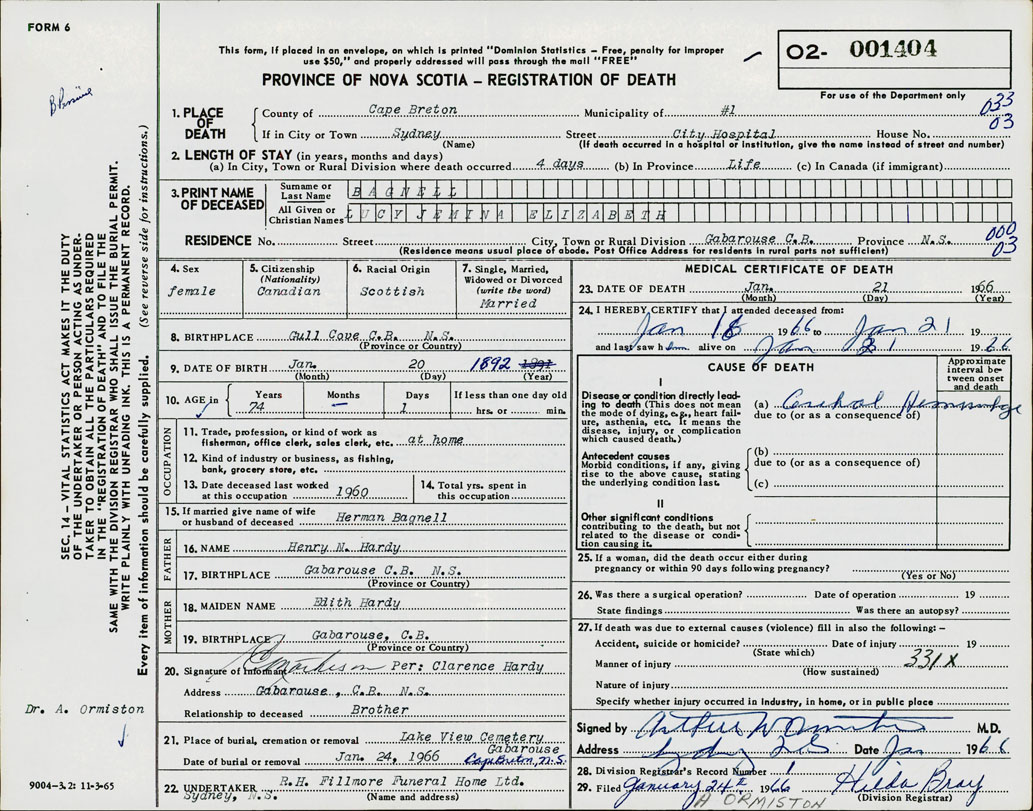 FORM 6
This form, if placed in an envelope, on which is printed "Dominion Statistics – Free, penalty for improper
use $50," and properly addressed will pass through the mail "FREE"
PROVINCE OF NOVA SCOTIA – REGISTRATION OF DEATH
02- 001404
For use of the Department only
033
03
1. PLACE OF DEATH
County of Cape Breton Municipality of #1
If in City or Town Sydney Street City Hospital House No.
(Name) (If death occurred in a hospital or institution, give the name instead of street and number)
2. LENGTH OF STAY (in years, months and days)
(a) In City, Town or Rural Division where death occurred 4 days (b) In Province Life (c) In Canada (if immigrant)
3. PRINT NAME OF DECEASED
Surname or Last Name BAGNELL
All Given or Christian Names LUCY JEMINA ELIZABETH
000
03
RESIDENCE No. Street City, Town or Rural Division Gabarouse C.B. Province N.S.
(Residence means usual place of abode. Post Office Address for residents in rural parts not sufficient)
4. Sex
female
5. Citizenship
(Nationality)
Canadian
6. Racial Origin
Scottish
7. Single, Married,
Widowed or Divorced
(write the word)
Married
8. BIRTHPLACE Gull Cove C.B. N.S.
(Province or Country)
9. DATE OF BIRTH Jan. 20 1892 1891
(Month) (Day) (Year)
10. AGE in Years 74 Months – Days 1 If less than one day old
hrs. or min.
OCCUPATION
11. Trade, profession, or kind of work as
fisherman, office clerk, sales clerk, etc. at home
12. Kind of industry or business, as fishing,
bank, grocery store, etc.
13. Date deceased last worked
at this occupation 1960
14. Total yrs. spent in
this occupation
15. If married give name of wife
or husband of deceased Herman Bagnell
FATHER
16. NAME Henry N. Hardy
17. BIRTHPLACE Gabarouse C.B. N.S.
(Province or Country)
MOTHER
18. MAIDEN NAME Edith Hardy
19. BIRTHPLACE Gabarouse, C.B.
(Province or Country)
20. Signature of Informant Per: Clarence Hardy
Address Gabarouse, C.B. N.S.
Relationship to deceased Brother
21. Place of burial, cremation or removal Lake View Cemetery
Gabarouse
Date of burial or removal Jan. 24, 1966 Cape Breton, N.S.
22. UNDERTAKER R.H. Fillmore Funeral Home Ltd.
Sydney, N.S. (Name and address)
MEDICAL CERTIFICATE OF DEATH
23. DATE OF DEATH Jan. 21 1966
(Month) (Day) (Year)
24. I HEREBY CERTIFY that I attended deceased from:
Jan 18 1966 to Jan 21 19
and last saw h alive on Jan 21 1966
CAUSE OF DEATH
Approximate
interval be-
tween onset
and death
I
Disease or condition directly lead-
ing to death (This does not mean
the mode of dying, e.g., heart fail-
ure, asthenia, etc. It means the
disease, injury, or complication
which caused death.)
(a) Cerebral Hemorrhage
due to (or as a consequence of)
Antecedent causes
Morbid conditions, if any, giving
rise to the above cause, stating
the underlying condition last.
(b)
due to (or as a consequence of)
(c)
II
Other significant conditions
contributing to the death, but not
related to the disease or condi-
tion causing it.
25. If a woman, did the death occur either during
pregnancy or within 90 days following pregnancy?
(Yes or No)
26. Was there a surgical operation? Date of operation 19
State findings Was there an autopsy?
27. If death was due to external causes (violence) fill in also the following: –
Accident, suicide or homicide? Date of injury 19
(State which)
Manner of injury 331X
(How sustained)
Nature of injury
Specify whether injury occurred in industry, in home, or in public place
Signed by Arthur W Ormiston M.D.
Address Sydney N.S. Date Jan 1966
28. Division Registrar's Record Number 1
29. Filed January 24th 1966 Hilda Bray
A ORMISTON (Division Registrar)
SEC. 14 – VITAL STATISTICS ACT MAKES IT THE DUTY
OF THE UNDERTAKER OR PERSON ACTING AS UNDER-
TAKER TO OBTAIN ALL THE PARTICULARS REQUIRED
IN THE "REGISTRATION OF DEATH" AND TO FILE THE
SAME WITH THE DIVISION REGISTRAR WHO SHALL ISSUE THE BURIAL PERMIT.
WRITE PLAINLY WITH UNFADING INK. THIS IS A PERMANENT RECORD.
Every item of information should be carefully supplied. (See reverse side for instructions.)
Dr. A. Ormiston
9004–3.2: 11-3-65